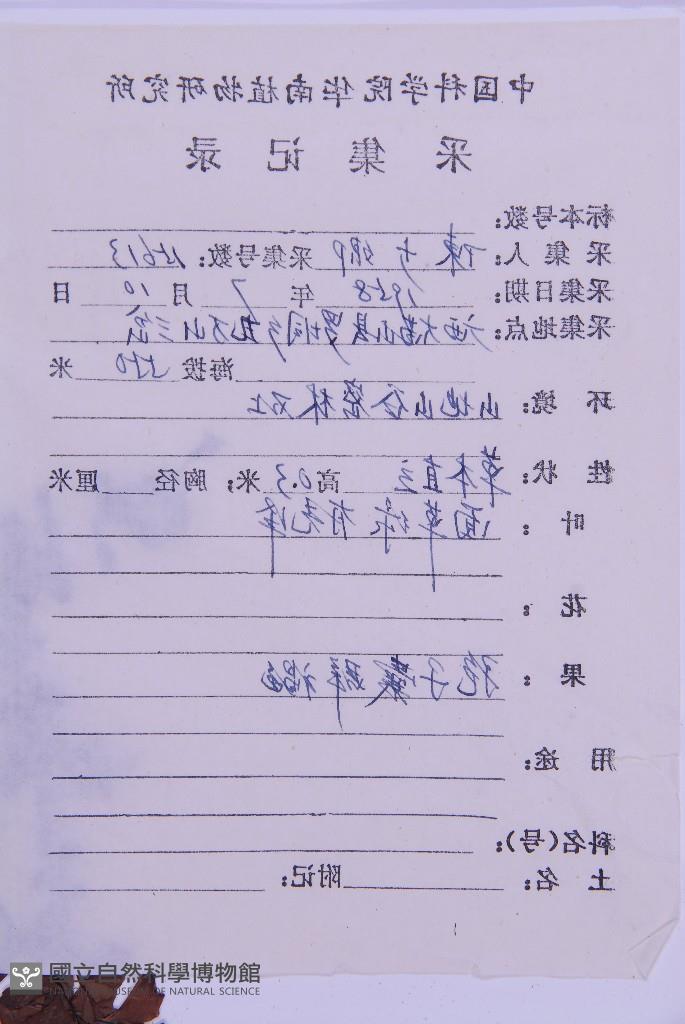 中国科学院华南植物研究所
采集记录
标本号数：
采集人：陳少卿 采集号数：15613
采集日期：1958年7月10日
采集地点：
海拨 550 米
环境：山地山谷密林
性状：草本直立 高0.3米；胸径 厘米
叶：面草绿有光泽
花：
果：孢子囊群褐色
用途：
科名(号)：
土名： 附记：
國立自然科學博物館
NATIONAL MUSEUM OF NATURAL SCIENCE